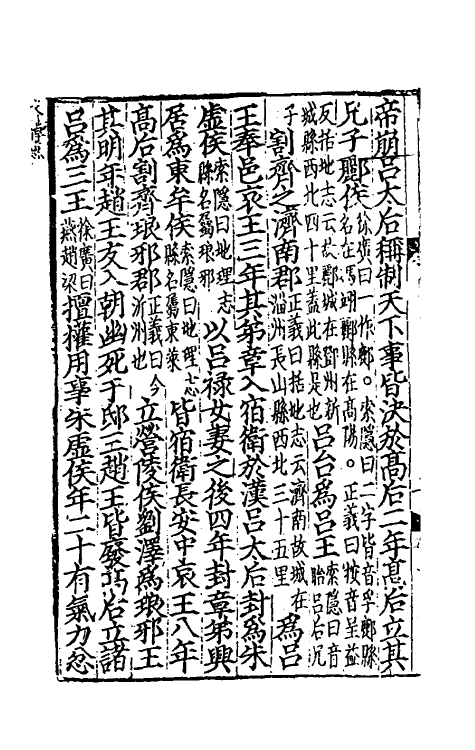 帝崩吕太后稱制天下事皆決於高后二年高后立其
兄子酈侯徐廣曰一作鄜。索隱曰二字皆音孚鄜縣名在馮翊酈縣在高陽。正義曰按音呈益反括地志云故酈城在鄧州新城縣西北四十里蓋此縣是也吕台爲吕王索隱曰音胎吕后兄子割齊之濟南郡正義曰括地志云濟南故城在淄州長山縣西北三十五里爲吕
王奉邑哀王三年其弟章入宿衛於漢吕太后封爲朱
虚侯索隱曰地理志縣名屬琅邪以吕禄女妻之後四年封章弟興
居爲東牟侯索隱曰地理志縣名屬東萊皆宿衛長安中哀王八年
高后割齊琅邪郡正義曰今沂州也立營陵侯劉澤爲琅邪王
其明年趙王友入朝幽死于邸三趙王皆發高后立諸
吕爲三王徐廣曰燕趙梁擅權用事朱虚侯年二十有氣力忿